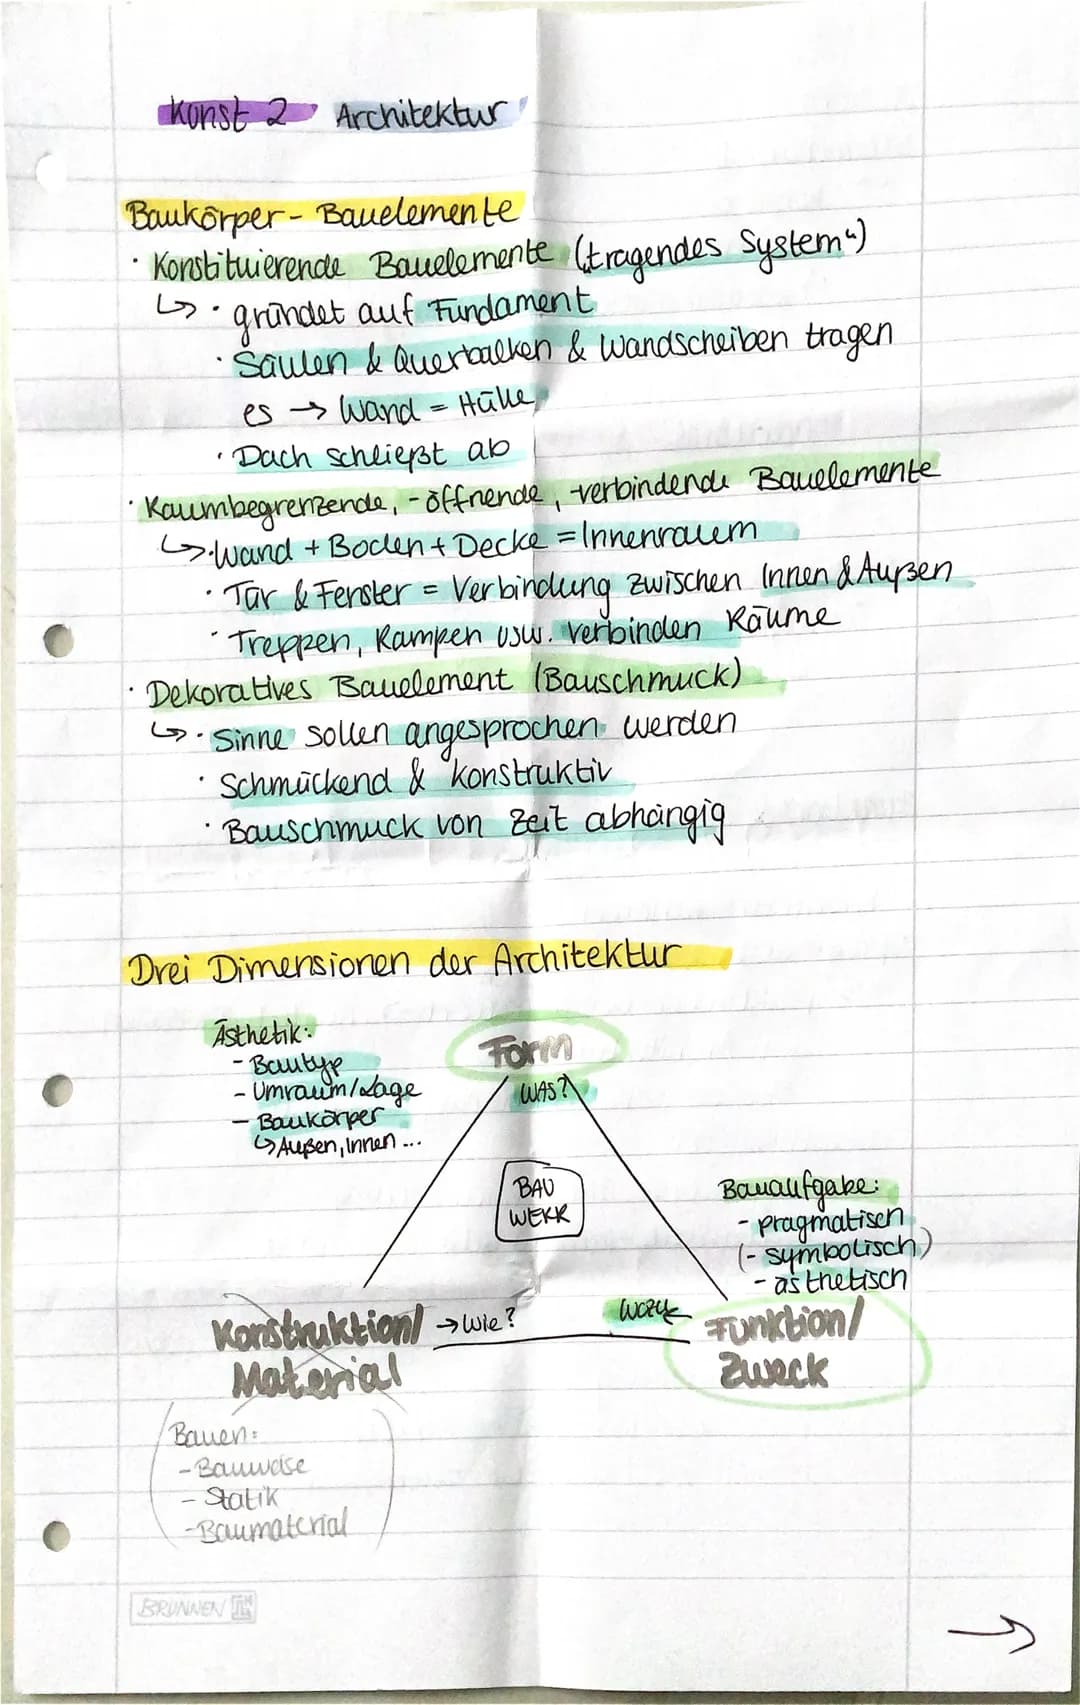 Kunst 2 Architektur
Baukörper - Bauelemente
· Konstituierende Bauelemente (tragendes System“)
↳ · gründet auf Fundament
· Säulen & Querbalken & Wandscheiben tragen
es → Wand = Hülle
· Dach schließt ab
· Raumbegrenzende, -öffnende, -verbindende Bauelemente
↳ · Wand + Boden + Decke = Innenraum
· Tür & Fenster = Verbindung zwischen Innen & Außen
· Treppen, Rampen usw. verbinden Räume
· Dekoratives Bauelement (Bauschmuck)
↳ · Sinne sollen angesprochen werden
· Schmückend & konstruktiv
· Bauschmuck von Zeit abhängig
Drei Dimensionen der Architektur
Ästhetik:
- Bautyp
- Umraum/Lage
- Baukörper
↳ Außen, Innen ...
Form
WAS?
BAU
WERK
Bauaufgabe:
- pragmatisch
(- symbolisch)
- ästhetisch
Konstruktion/
Material
→ Wie?
Wozu
Funktion/
Zweck
Bauen:
- Bauweise
- Statik
- Baumaterial
BRUNNEN
→